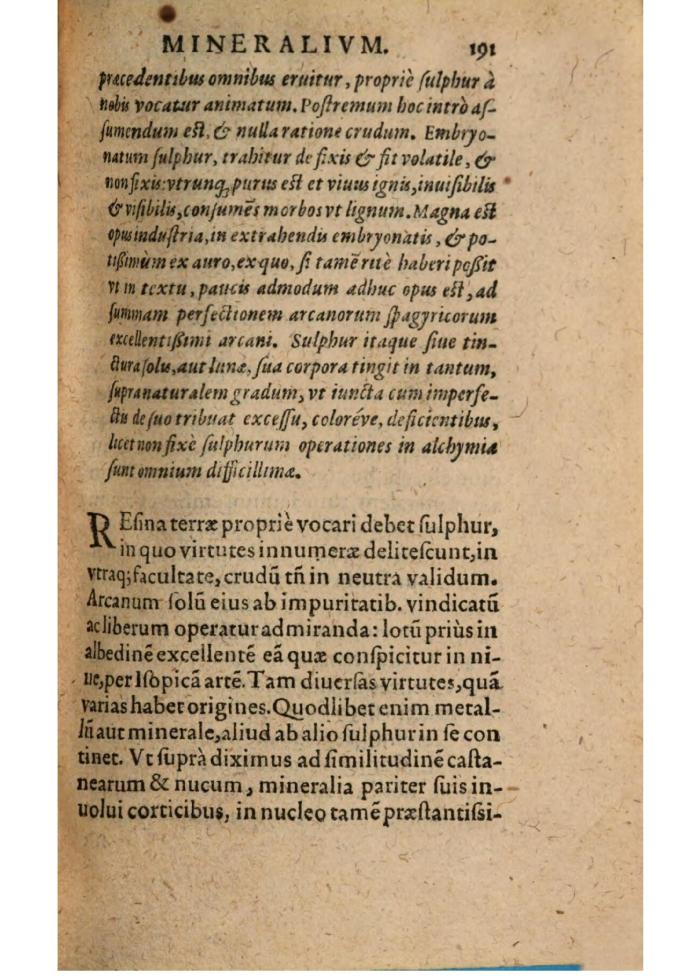 MINERALIVM. 191
præcedentibus omnibus eruitur, propriè ſulphur à
nobis vocatur animatum. Poſtremum hoc intrò aſ-
ſumendum eſt, & nulla ratione crudum. Embryo-
natum ſulphur, trahitur de fixis & fit volatile, &
non fixis: vtrunq; purus eſt et viuus ignis, inuiſibilis
& viſibilis, conſumẽs morbos vt lignum. Magna eſt
opus induſtria, in extrahendis embryonatis, & po-
tißimùm ex auro, ex quo, ſi tamẽ ritè haberi poßit
vt in textu, paucis admodum adhuc opus eſt, ad
ſummam perfectionem arcanorum ſpagyricorum
excellentißimi arcani. Sulphur itaque ſiue tin-
ctura ſolis, aut lunæ, ſua corpora tingit in tantum,
ſupra naturalem gradum, vt iuncta cum imperfe-
ctis de ſuo tribuat exceſſu, coloréve, deficientibus,
licet non fixè ſulphurum operationes in alchymia
ſunt omnium difficillimæ.
REſina terræ propriè vocari debet ſulphur,
in quo virtutes innumeræ deliteſcunt, in
vtraq; facultate, crudũ tñ in neutra validum.
Arcanum ſolũ eius ab impuritatib. vindicatũ
ac liberum operatur admiranda: lotũ priùs in
albedinẽ excellentẽ eã quæ conſpicitur in ni-
ue, per Iſopicã artẽ. Tam diuerſas virtutes, quã
varias habet origines. Quodlibet enim metal-
lũ aut minerale, aliud ab alio ſulphur in ſe con
tinet. Vt ſuprà diximus ad ſimilitudinẽ caſta-
nearum & nucum, mineralia pariter ſuis in-
uolui corticibus, in nucleo tamẽ præſtantiſſi-